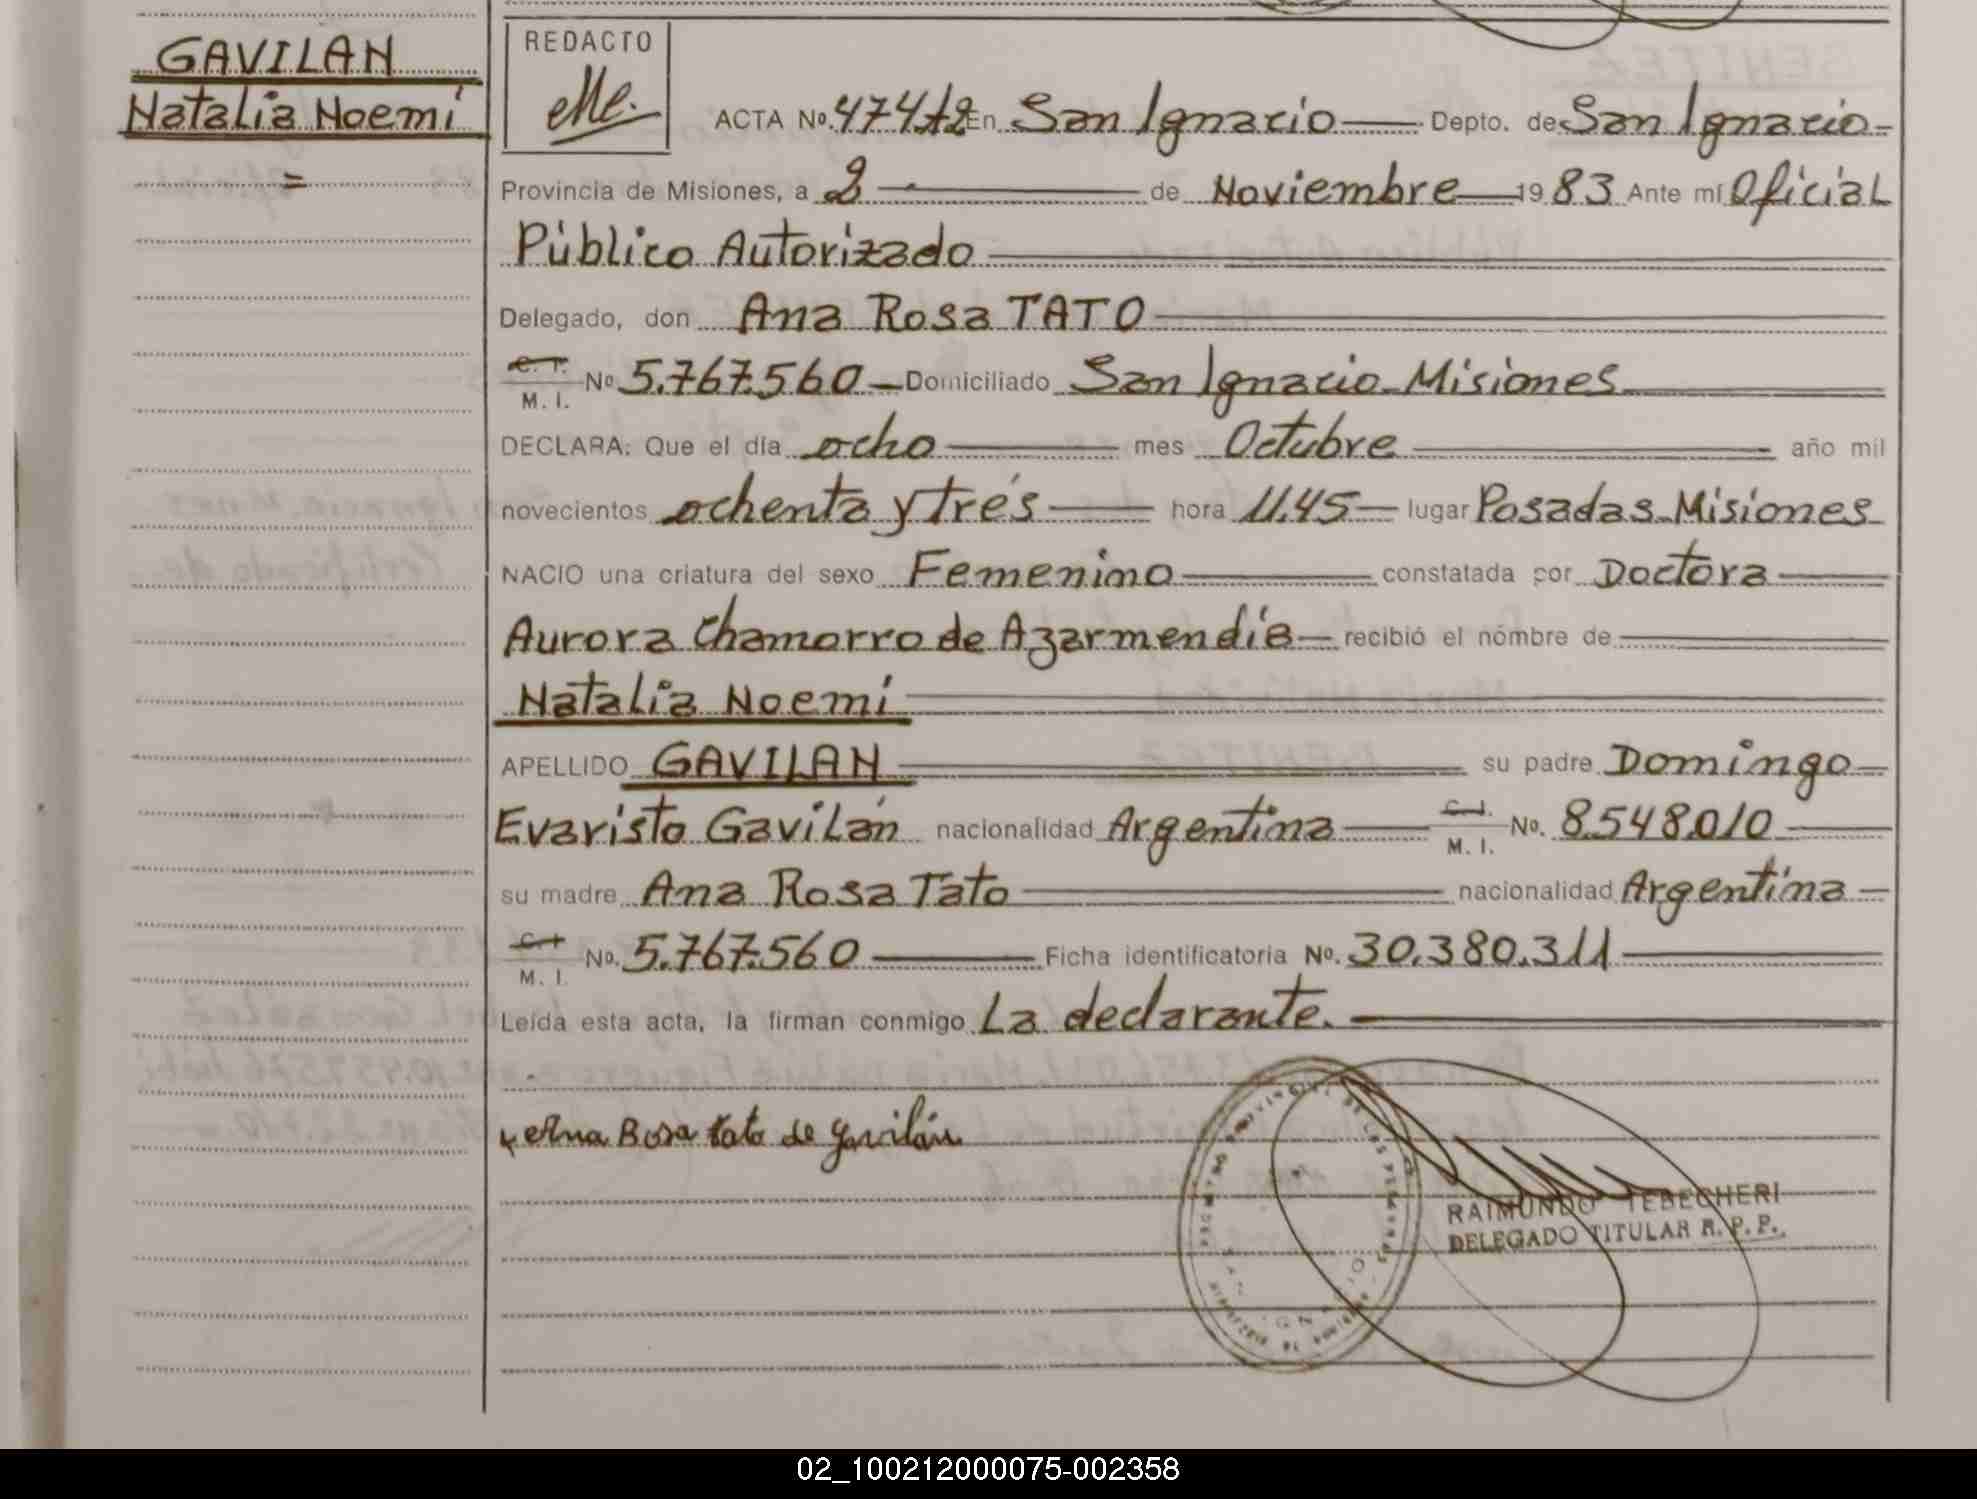 GAVILAN
Natalia Noemí
=
REDACTO
ACTA No. 474 t2 En San Ignacio Depto. de San Ignacio
Provincia de Misiones, a 2 de Noviembre 1983 Ante mí Oficial
Público Autorizado
Delegado, don Ana Rosa TATO
C. I. M. I. No 5.767.560 Domiciliado San Ignacio Misiones
DECLARA: Que el día ocho mes Octubre año mil
novecientos ochenta y trés hora 11.45 lugar Posadas-Misiones
NACIO una criatura del sexo Femenino constatada por Doctora
Aurora Chamorro de Azarmendía recibió el nombre de
Natalia Noemí
APELLIDO GAVILAN su padre Domingo
Evaristo Gavilán nacionalidad Argentina C. I. M. I. No. 8.548.010
su madre Ana Rosa Tato nacionalidad Argentina
C. I. M. I. No. 5.767.560 Ficha identificatoria No. 30.380.311
Leída esta acta, la firman conmigo La declarante.
Ana Rosa Tato de Gavilán
RAIMUNDO TEBECHERI
DELEGADO TITULAR R. P. P.
02_100212000075-002358